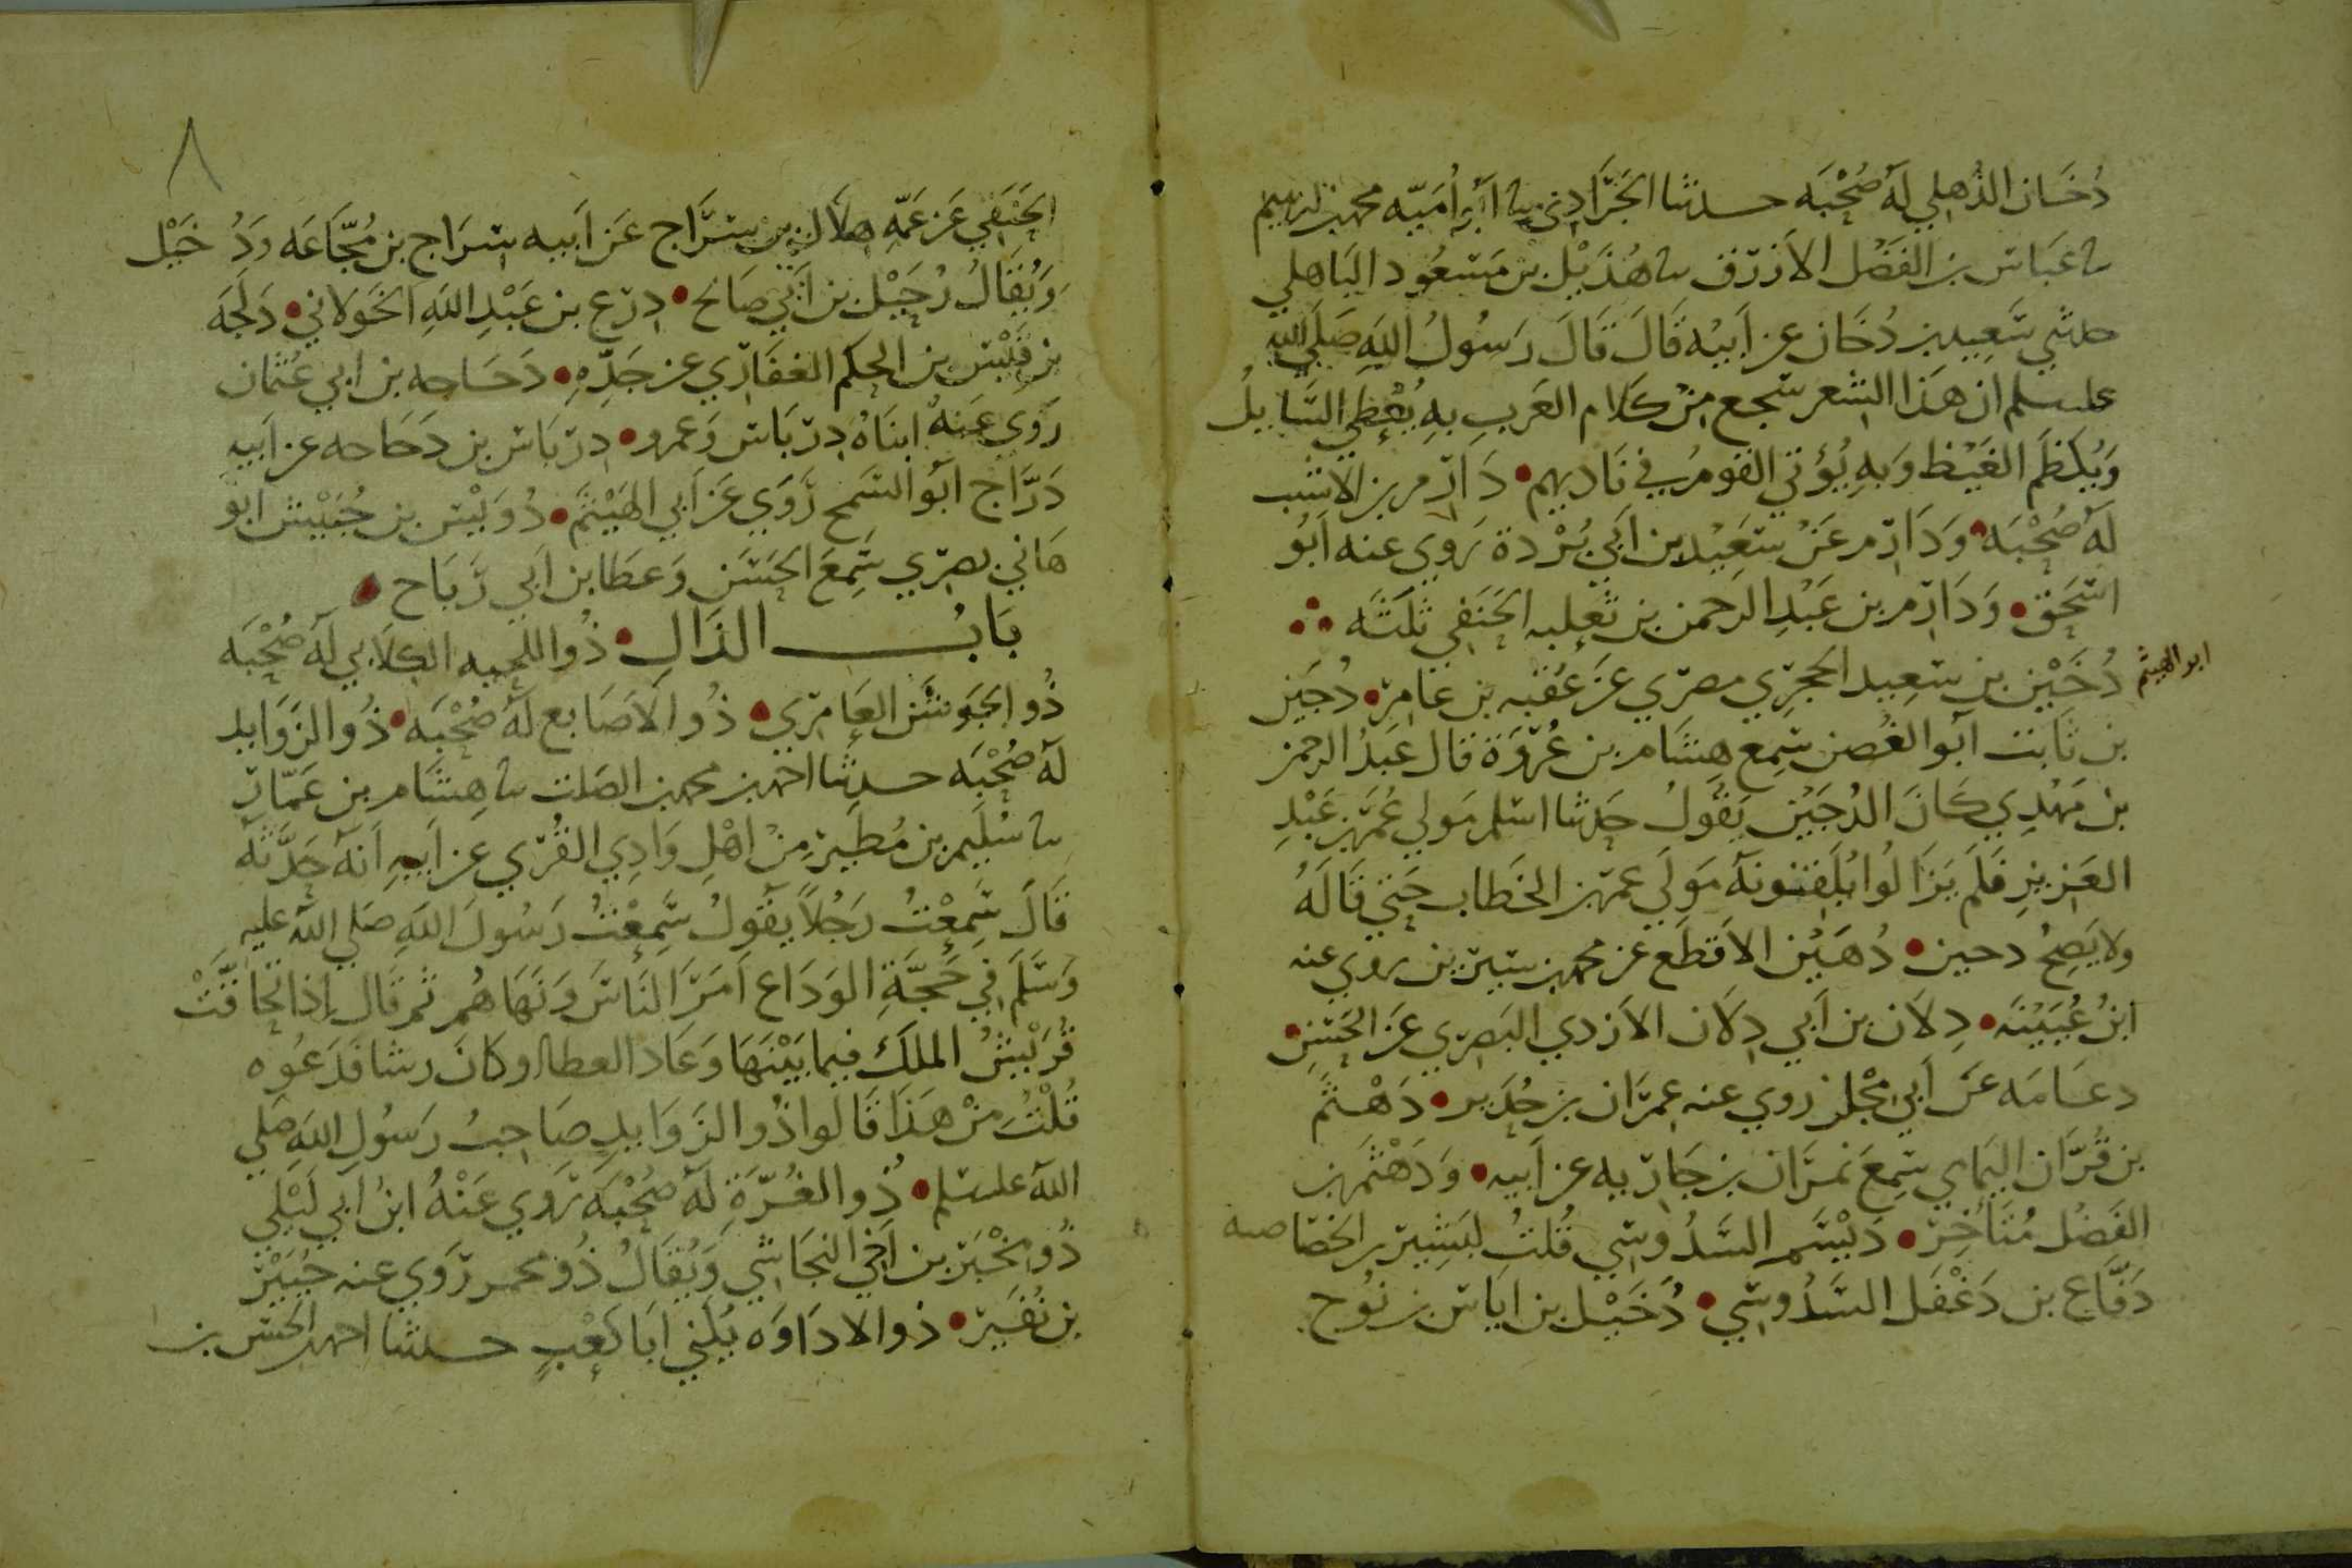 دُخَان الذُهلي لَهُ صُحْبَه حدثنا الجَرَّادِي سا أبو أُمَيّه محمد بن ابرهيم
سا عَبَاس بن الفَضْل الأزرَق سا هُذَيْل بن مَسعُود البَاهلي
حدثني سَعِيد بن دُخَان عن أبيْه قَالَ قَالَ رَسُولُ اللهِ صَلَى الله
عليه وسلم ان هَذا الشعر سَجع مِنْ كَلام العَرب بهِ يُعْطي السَّايلُ
وَيُكظَم الغَيْظ وَبهِ يُؤتي القومُ في نَاديهم • دَارِم بن الأشب
لَهُ صُحْبَه • وَدَارِم عَنْ سَعِيْد بن أبي بُرْدة رَوي عنه أبُو
اسْحَق • وَدَارِم بن عَبْدِ الرحمن بن ثعلبه الحَنَفي ثلثَه ؞
دُخَيْن بن سَعِيد الحجرِي مصرِي عَن عُقبه بن عَامِر • دُجَين
ابو الهيثم
بن ثَابت أبو الغُصن سَمِع هِشَام بن عُرْوَة قال عَبدُ الرحمن
بن مَهْدِي كَانَ الدُجَيْن يَقُولُ حَدثنا اسلم مَولي عُمَر بن عَبْدِ
العَزيزِ فلَم يَزَالُوا يُلَقِنونَهُ مَولَي عمر بن الخَطاب حَتي قَالَهُ
ولا يَصِحُ دجين • دُهَيْن الأقطَع عن محمد بن سيرين روي عنه
ابنُ عُيَيْنَه • دِلَان بن أبي دِلَان الأزدي البَصرِي عَن الحَسَن •
دعَامَه عَن أبي مِجْلز روي عنه عِمرَان بن حُدَير • دَهْثَم
بن قُرَّان اليَمَامي سَمِعَ نمرَان بن جَاريه عن أبيه • وَدَهْثَم بن
الفَضْل مُتَأخِر • دَيْسَم السَدُوسي قُلتُ لبَشِير بن الخصَاصية
دَفَّاع بن دَغْفَل السَدُوسِي • دُخَيْل بن ايَاس بن نُوح
٨
الحَنَفي عَن عَمّهِ هِلَال بن سرَّاج عَن أبيه سرَاج بن مُجَّاعَه وَدُخَيْل
وَيُقَالُ رُحَيْل بن أبي صَالح • دِرْع بن عَبْدِ اللهِ الخَولاني • دَلَجَه
بن قَيْس بن الحكم الغفَارِي عن جَدِّهِ • دَحَاحه بن أبي عُثمان
رَوَي عَنهُ ابنَاهُ دِربَاس وَعمرو • دِربَاس بن دَحَاحه عن أبيه
دَرَّاج أبو السَمح رَوَي عَن أبي الهَيْثَم • دُوَيْس بن حُبَيْش أبو
هَاني بصرِي سَمِعَ الحَسَن وَعطَا بن أبي رَبَاح •
بَابُ الذَال • ذُو اللحيه الكلابي لَهُ صُحْبَه
ذُو الجَوشَن العَامِرِي • ذُو الأصَابع لَهُ صُحْبَه • ذُو الزَوَايد
لَهُ صُحْبَه حدثنا احمد بن محمد بن الصَلت سا هِشَام بن عَمَّار
سا سُلَيم بن مُطَير مِنْ اهْلِ وَادِي القُرَي عن أبيهِ أنهُ حَدَّثهُ
قَالَ سَمِعْتُ رَجُلاً يَقُولُ سَمِعْتُ رَسُولَ اللهِ صَلي الله عليه
وَسَلَم في حَجَّةِ الوَدَاع أمَرَ النَاسَ وَنَهَاهُم ثم قَال إذا تجَافَتْ
قُرَيْشُ الملكَ فيما بَيْنَهَا وَعَاد العطا او كان رشا فَدَعُوه
قُلْتُ مَنْ هَذا قَالُوا ذُو الزَوَايدِ صَاحِبُ رَسُولِ اللهِ صَلي
الله عليه وسلم • ذُو الغُرَّةِ لَهُ صُحْبَه رَوي عَنْهُ ابنُ أبي لَيْلي
ذُو مِخْبَر بن أخي النجَاشي وَيُقَالُ ذُو مخمر رَوَي عنه جُبَيْرُ
بن نُفَير • ذو الادَاوَه يُكنَي أبَا كَعْبٍ حدثنا احمد بن الحَسَن بن